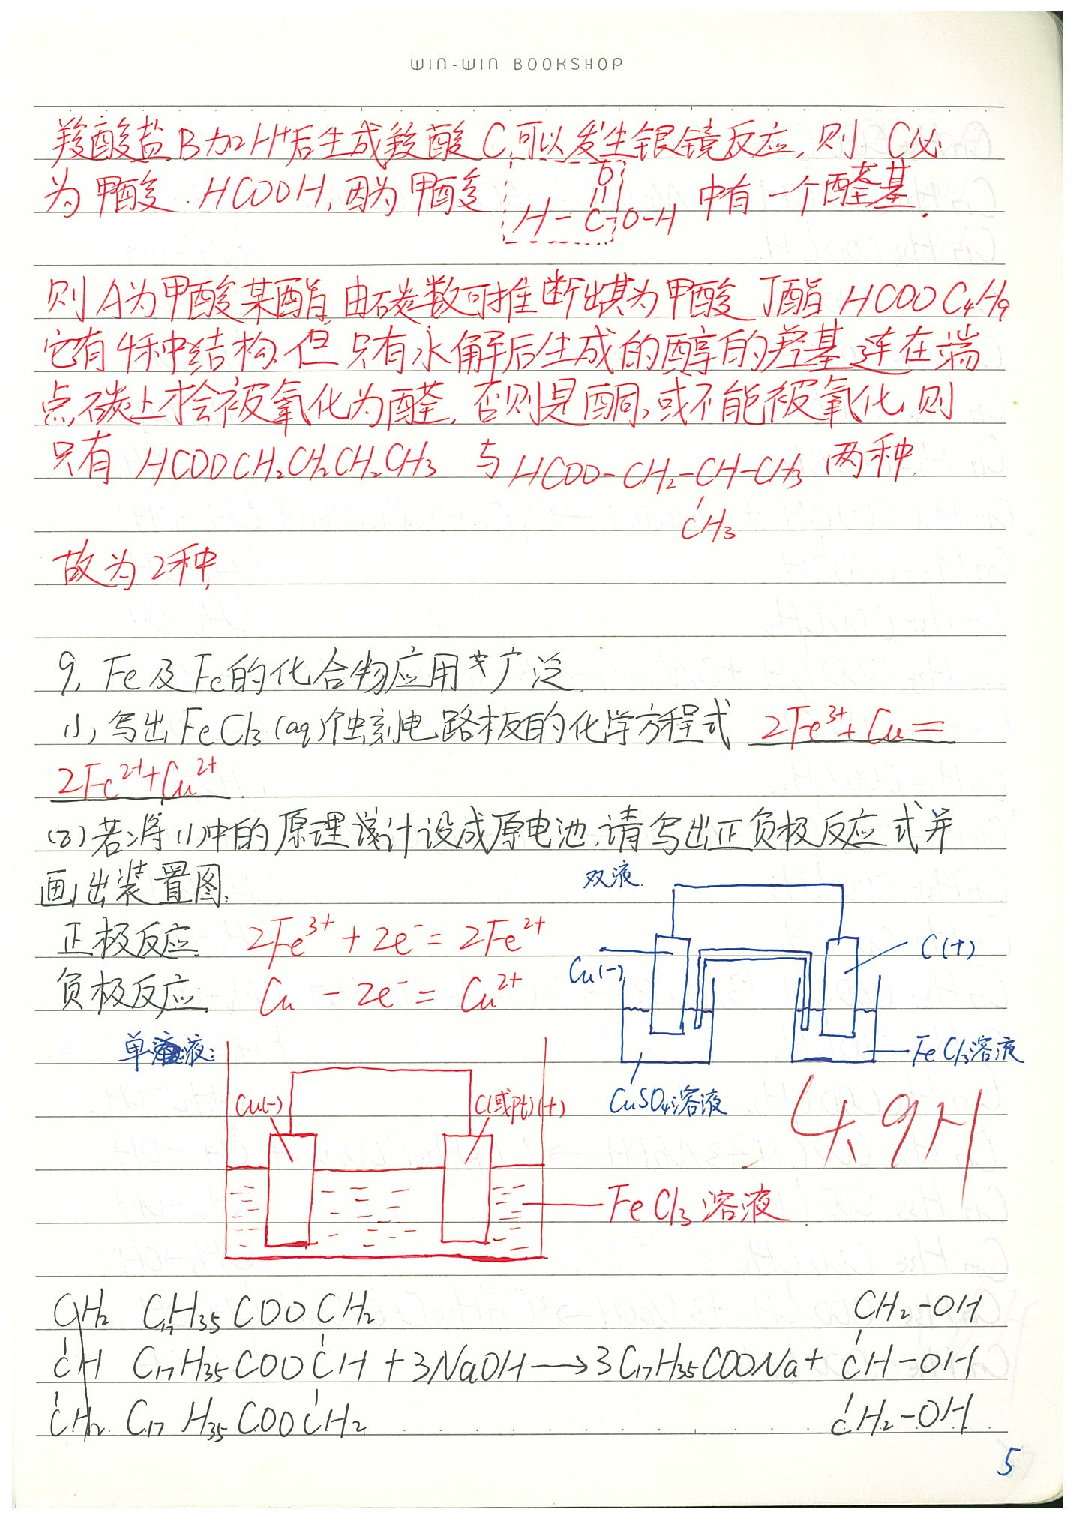 WIN-WIN BOOKSHOP
羧酸盐B加H⁺后生成羧酸C,可以发生银镜反应,则C必
为甲酸.HCOOH,因为甲酸 H-C-O-H 中有一个醛基.
O
则A为甲酸某酯,由碳数可推断出其为甲酸丁酯HCOOC₄H₉
它有4种结构,但只有水解后生成的醇的羟基连在端
点碳上才会被氧化为醛,否则是酮,或不能被氧化,则
只有HCOOCH₂CH₂CH₂CH₃ 与HCOO-CH₂-CH-CH₃ 两种.
CH₃
故为2种
9. Fe及Fe的化合物应用广泛
(1)写出FeCl₃(aq)蚀刻电路板的化学方程式 2Fe³⁺+Cu=
2Fe²⁺+Cu²⁺
(2)若将(1)中的原理设计成原电池,请写出正负极反应式并
画出装置图.
双液.
正极反应 2Fe³⁺+2e⁻=2Fe²⁺
C(+)
Cu(-)
负极反应 Cu-2e⁻=Cu²⁺
单液:
FeCl₃溶液
Cu(-)
C(或Pt)(+)
CuSO₄溶液
4.9H
FeCl₃溶液
CH₂ C₁₇H₃₅COOCH₂ CH₂-OH
CH C₁₇H₃₅COOCH+3NaOH→3C₁₇H₃₅COONa+ CH-OH
CH₂ C₁₇H₃₅COOCH₂ CH₂-OH
5